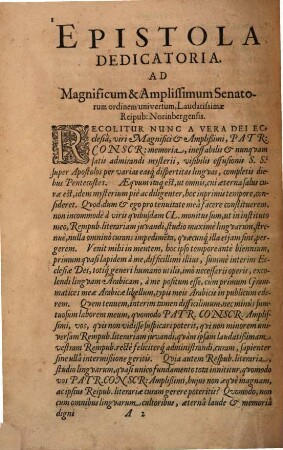 EPISTOLA
DEDICATORIA.
AD
Magnificum & Amplissimum Senato-
rum ordinem universum, Laudatissimæ
Reipub: Norinbergensis.
RECOLITUR NUNC A VERA DEI EC-
clesiâ, veri Magnifici & Amplissimi, PATR.
CONSCR: memoria, ineffabilis & nunquam
satis admirandi mysterii, visibilis effusionis S. S.
super Apostolos per varias easq; dispertitas linguas, completis die-
bus Pentecostes. Æquum itaq; est, ut omnis, cui æterna salus curæ
est, idem mysterium piè ac diligenter, hoc inprimis tempore, con-
sideret. Quod dum & ego pro tenuitate meâ facere constituerem,
non incommodè à viris quibusdam CL. monitus sum, ut in instituto
meo, Rempub. literariam juvandi, studio maximè linguarum, stre-
nuè, nulla omninò curans impedimenta, quæcunq; illa etiam sint, per-
gerem. Venit mihi in mentem, hoc ipso temporante biennium,
primum quasi lapidem à me, difficillimi illius, summè interim Ec-
clesiæ Dei, totiq; generi humano utilis, imò necessarii operis, exco-
lendi linguam Arabicam, à me positum esse, cum primum Gram-
matices meæ Arabicæ libellum, typis meis Arabicis in publicum e-
derem. Quem tenuem, interim tamen difficillimum, nec minùs sum-
tuosum laborem meum, quomodò PATR. CONSCR: Ampliss-
simi, vos, qui non vidisse suspicari poterit, qui non minorem univer-
sam Rempub. literariam juvandi, quàm ipsam laudatissimam
vestram Rempub. rectè feliciterq; administrandi, curam, sapienter
sine ullâ intermissione geritis. Quia autem Respub. literaria,
studio linguarum, quasi unico fundamento tota innititur, quomodò
vos PATR. CONSCR: Amplissimi, hujus non æquè magnam,
ac ipsius Reipub. literariæ curam gerere poteritis? Quomodò, non
cum omnibus linguarum cultoribus, æternâ laude & memoriâ
digni A 2